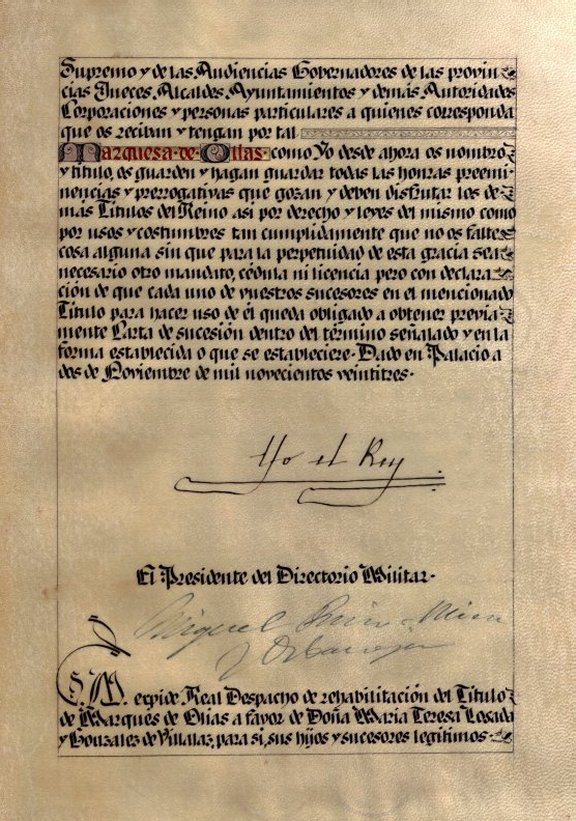 Supremo y de las Audiencias Gobernadores de las provin-
cias Jueces, Alcaldes, Ayuntamientos y demás Autoridades
Corporaciones y personas particulares a quienes corresponda
que os reciban y tengan por tal
Marquesa de Ollas como Yo desde ahora os nombro
y titulo, os guarden y hagan guardar todas las honras preemi-
nencias y prerrogativas que gozan y deben disfrutar los de-
más Títulos del Reino asi por derecho y leyes del mismo como
por usos y costumbres tan cumplidamente que no os falte
cosa alguna sin que para la perpetuidad de esta gracia sea
necesario otro mandato, cédula ni licencia pero con declara-
ción de que cada uno de vuestros sucesores en el mencionado
Titulo para hacer uso de él queda obligado a obtener previa-
mente Carta de sucesión dentro del término señalado y en la
forma establecida o que se estableciere. Dado en Palacio a
dos de Noviembre de mil novecientos veintitres.
Yo el Rey
El Presidente del Directorio Militar.
Miguel Primo de Rivera
y Orbaneja
S. M. expide Real Despacho de rehabilitación del Titulo
de Marques de Olias a favor de Doña Maria Teresa Losada
y Gonzalez de Villalaz, para si, sus hijos y sucesores legitimos.